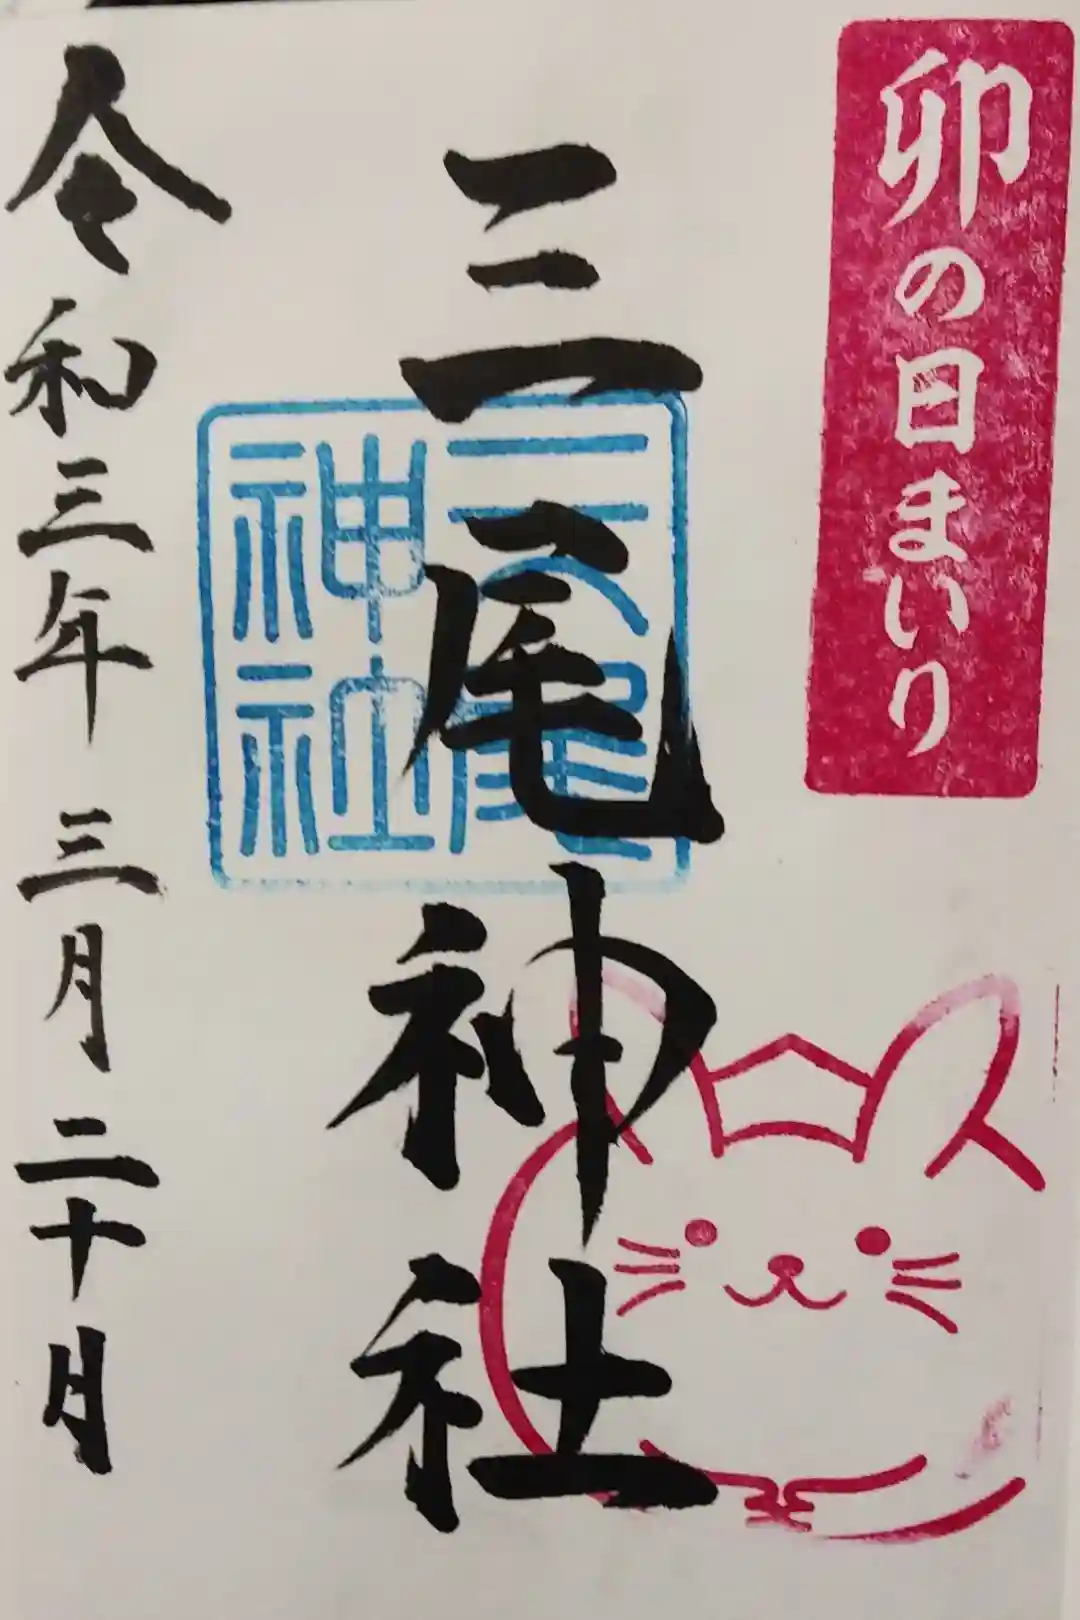 卯の日まいり
三尾神社
三尾
神社
令和三年 三月 二十月